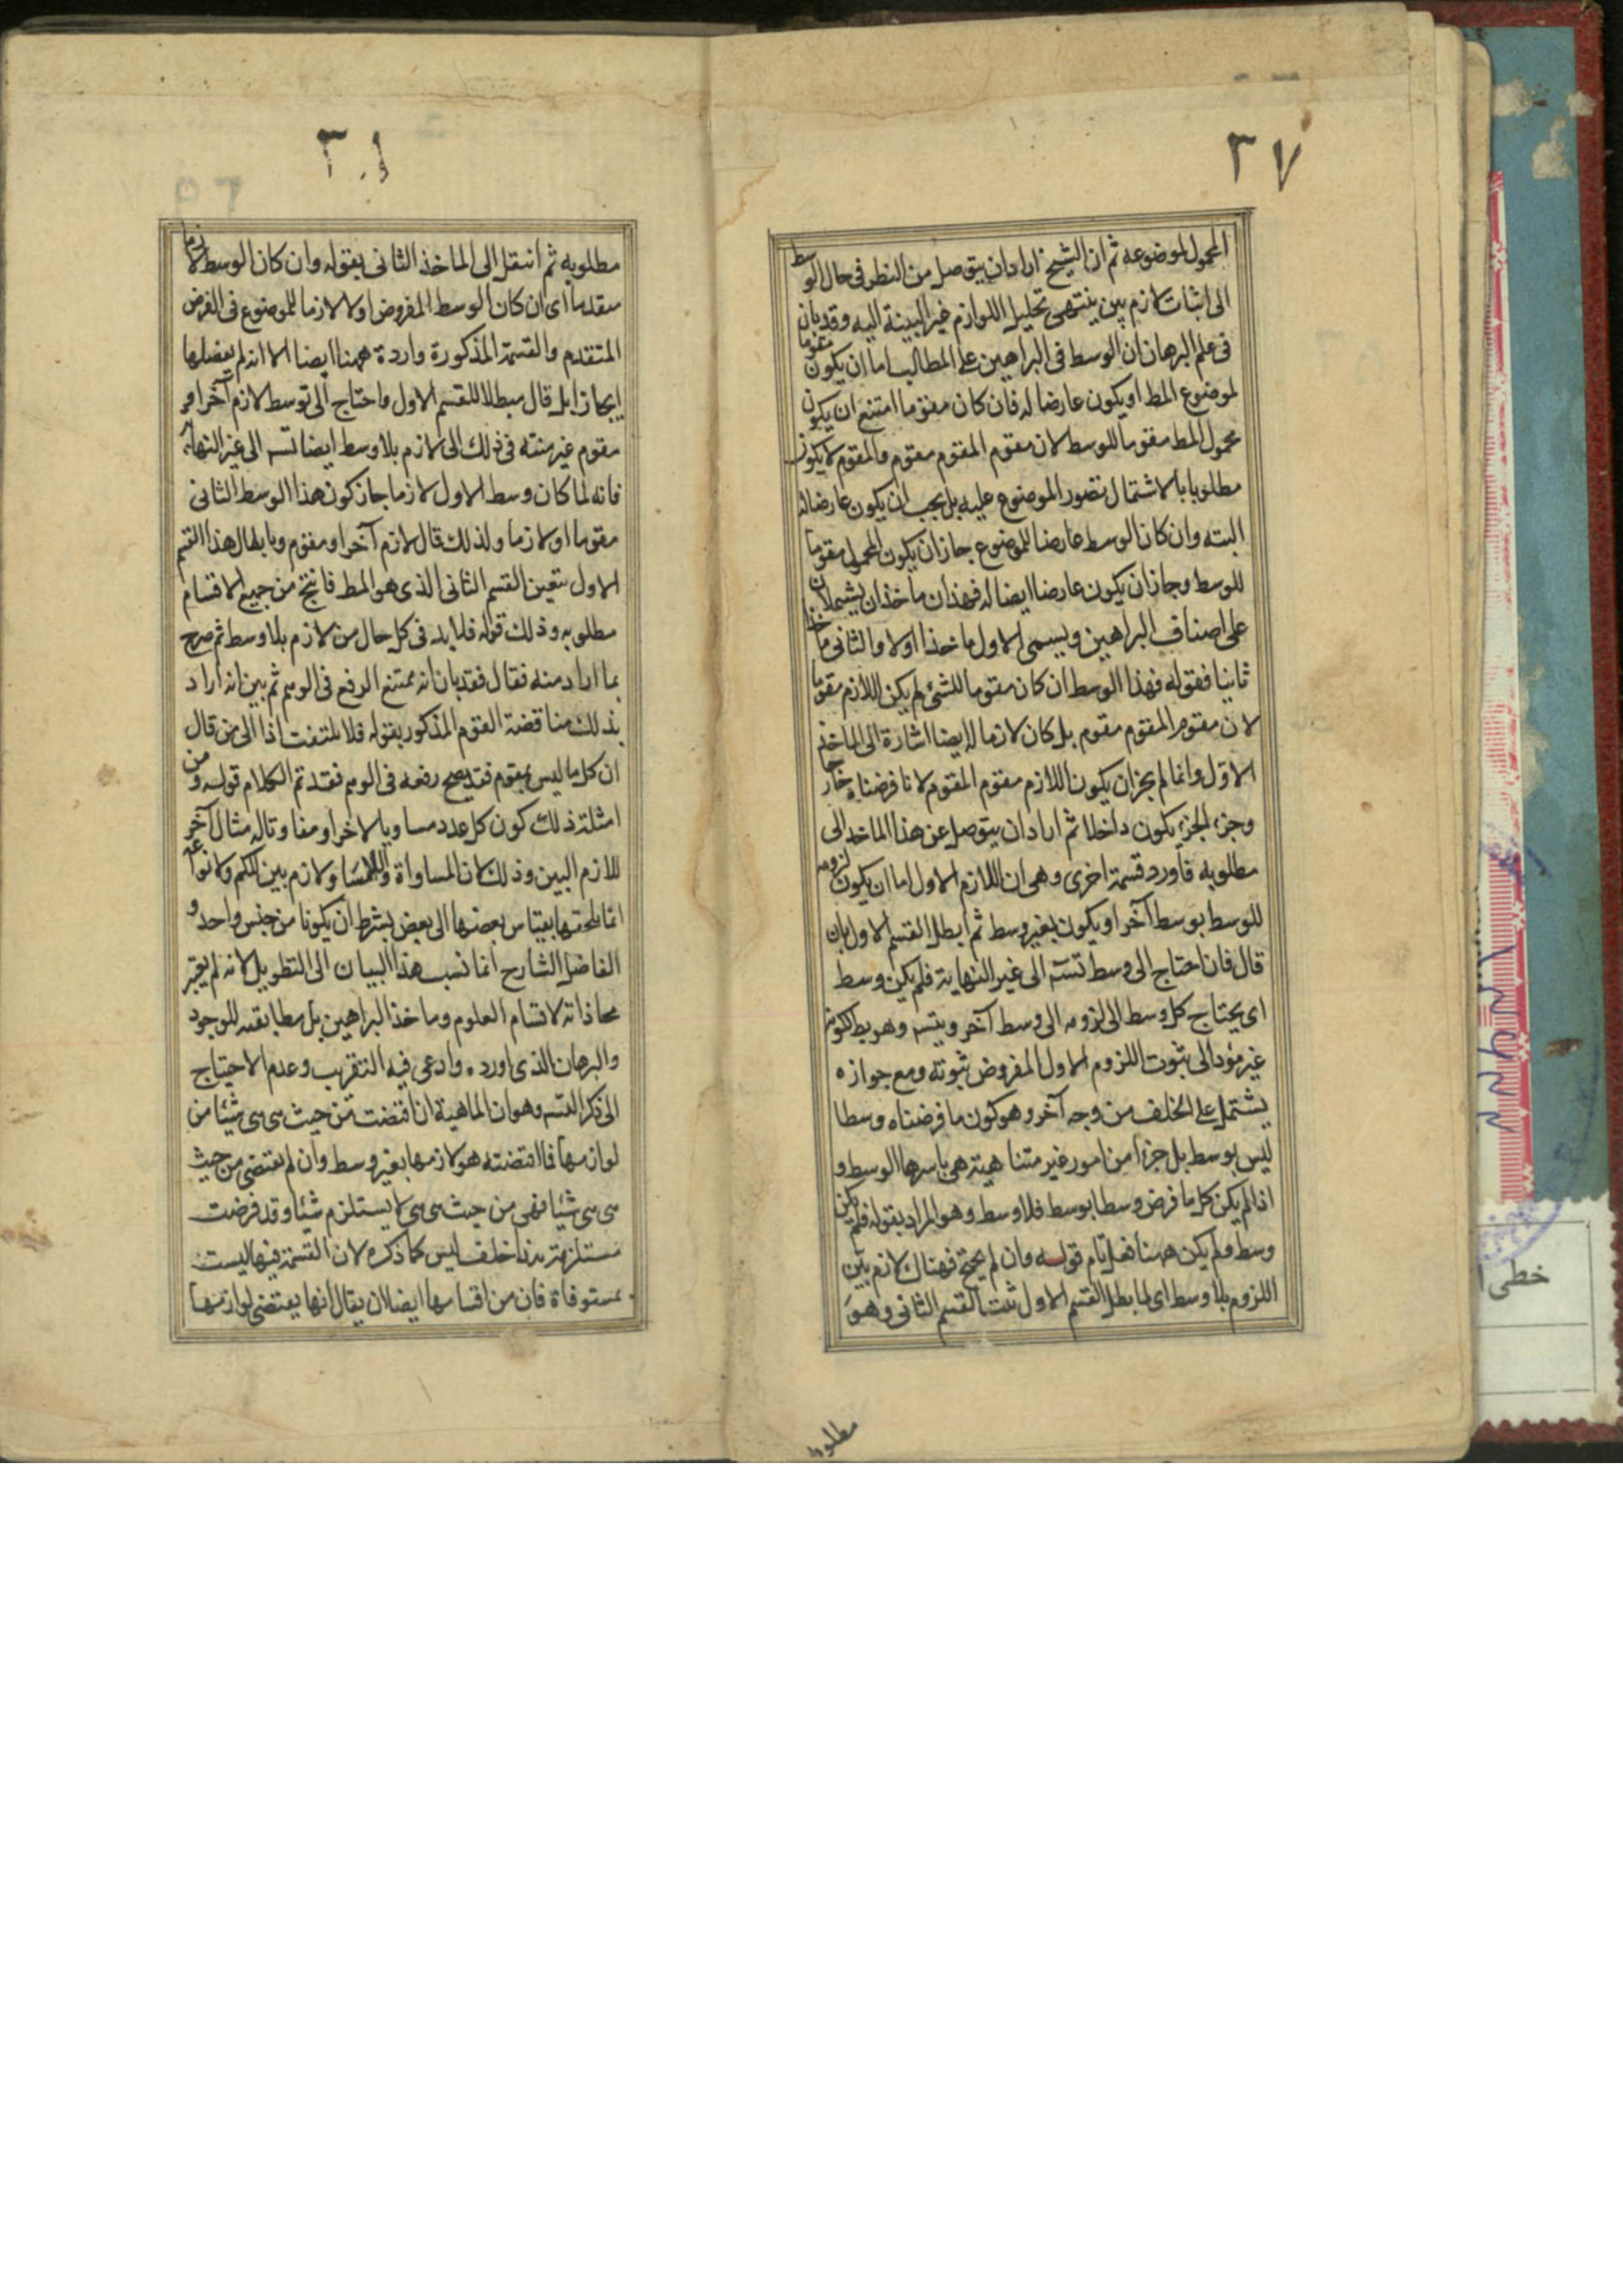 ٣٧
المحمول لموضوعه ثم ان الشيخ اراد ان يتوصل من النظر فى حال الوسط
الى اثبات لازم بين ينتهى تحليل اللوازم غير البينة اليه وقد بان
فى علم البرهان ان الوسط فى البراهين على المطالب اما ان يكون مقوما
لموضوع المط او يكون عارضا له فان كان مقوما امتنع ان يكون
محمول المط مقوما للوسط لان مقوم المقوم مقوم والمقوم لا يكون
مطلوبا بالاشتمال تصور الموضوع عليه بل يجب ان يكون عارضا له
البته وان كان الوسط عارضا للموضوع جاز ان يكون المحمول مقوما
للوسط وجاز ان يكون عارضا ايضا له فهذان ماخذان يشملان
على اصناف البراهين ويسمى الاول ماخذا اولا والثانى ماخذا
ثانيا فقوله فهذا الوسط ان كان مقوما للشئ لم يكن اللازم مقوما
لان مقوم المقوم مقوم بل كان لازما له ايضا اشارة الى الماخذ
الاول وانما لم يجز ان يكون اللازم مقوم المقوم لانا فرضناه خارجا
وجزء الجزء يكون داخلا ثم اراد ان يتوصل عن هذا الماخذ الى
مطلوبه فاورد قسمة اخرى وهى ان اللازم الاول اما ان يكون لزومه
للوسط بوسط آخر او يكون بغير وسط ثم ابطل القسم الاول بان
قال فان احتاج الى وسط تسه الى غير النهاية فلم يكن وسط
اى يحتاج كل وسط الى لزومه الى وسط آخر ويتسه وهو بط لكونه
غير مؤد الى ثبوت اللزوم الاول المفروض ثبوته ومع جوازه
يشتمل على الخلف من وجه آخر وهو كون ما فرضناه وسطا
ليس بوسط بل جزءا من امور غير متناهية هى باسرها الوسط و
اذا لم يكن كل ما فرض وسطا بوسط فلا وسط وهو المراد بقوله فلم يكن
وسط ولم يكن ههنا فعل تام قوله وان لم يحتج فهناك لازم بين
اللزوم بلا وسط اى لما بطل القسم الاول ثبت القسم الثانى وهو
مطلوبه
٣٨
مطلوبه ثم انتقل الى الماخذ الثانى بقوله وان كان الوسط لازما
متقدما اى ان كان الوسط المفروض اولا لازما للموضوع فى الفرض
المتقدم والقسمة المذكورة واردة ههنا ايضا الا انه لم يفصلها
ايجازا بل قال مبطلا للقسم الاول واحتاج الى توسط لازم آخر او
مقوم غير منته فى ذلك الى لازم بلا وسط ايضا تسه الى غير النهاية
فانه لما كان وسط الاول لازما جاز كون هذا الوسط الثانى
مقوما او لازما ولذلك قال لازم آخر او مقوم وبابطال هذا القسم
الاول يتعين القسم الثانى الذى هو المط فانتج من جميع الاقسام
مطلوبه وذلك قوله فلا بد فى كل حال من لازم بلا وسط ثم صرح
بما اراد منه فقال فقد بان انه ممتنع الرفع فى الوهم ثم بين انه اراد
بذلك مناقضة القوم المذكور بقوله فلا تلتفت اذا الى من قال
ان كل ما ليس بمقوم فقد يصح رفعه فى الوهم فقد تم الكلام قوله ومن
امثلة ذلك كون كل عدد مساويا لاخر او مفاوتا له مثال آخر
للازم البين وذلك لان المساواة واللامساواة لازم بين للكم ولانواعه
انما يلحقها بقياس بعضها الى بعض بشرط ان يكونا من جنس واحد و
الفاضل الشارح انما نسب هذا البيان الى التطويل لانه لم يعتبر
محاذاته لاقسام العلوم وماخذ البراهين بل مطابقته للوجود
والبرهان الذى اورده وادعى فيه التقريب وعدم الاحتياج
الى ذكر التسه وهو ان الماهية ان اقتضت من حيث هى هى شيئا من
لوازمها فما اقتضته هو لازمها بغير وسط وان لم يقتضى من حيث
هى هى شيئا فهى من حيث هى هى لا يستلزم شيئا وقد فرضت
مستلزمة هذا خلف ليس كما ذكره لان القسمة فيها ليست
بمستوفاة فان من اقسامها ايضا ان يقال انها يقتضى لوازمها
خطى